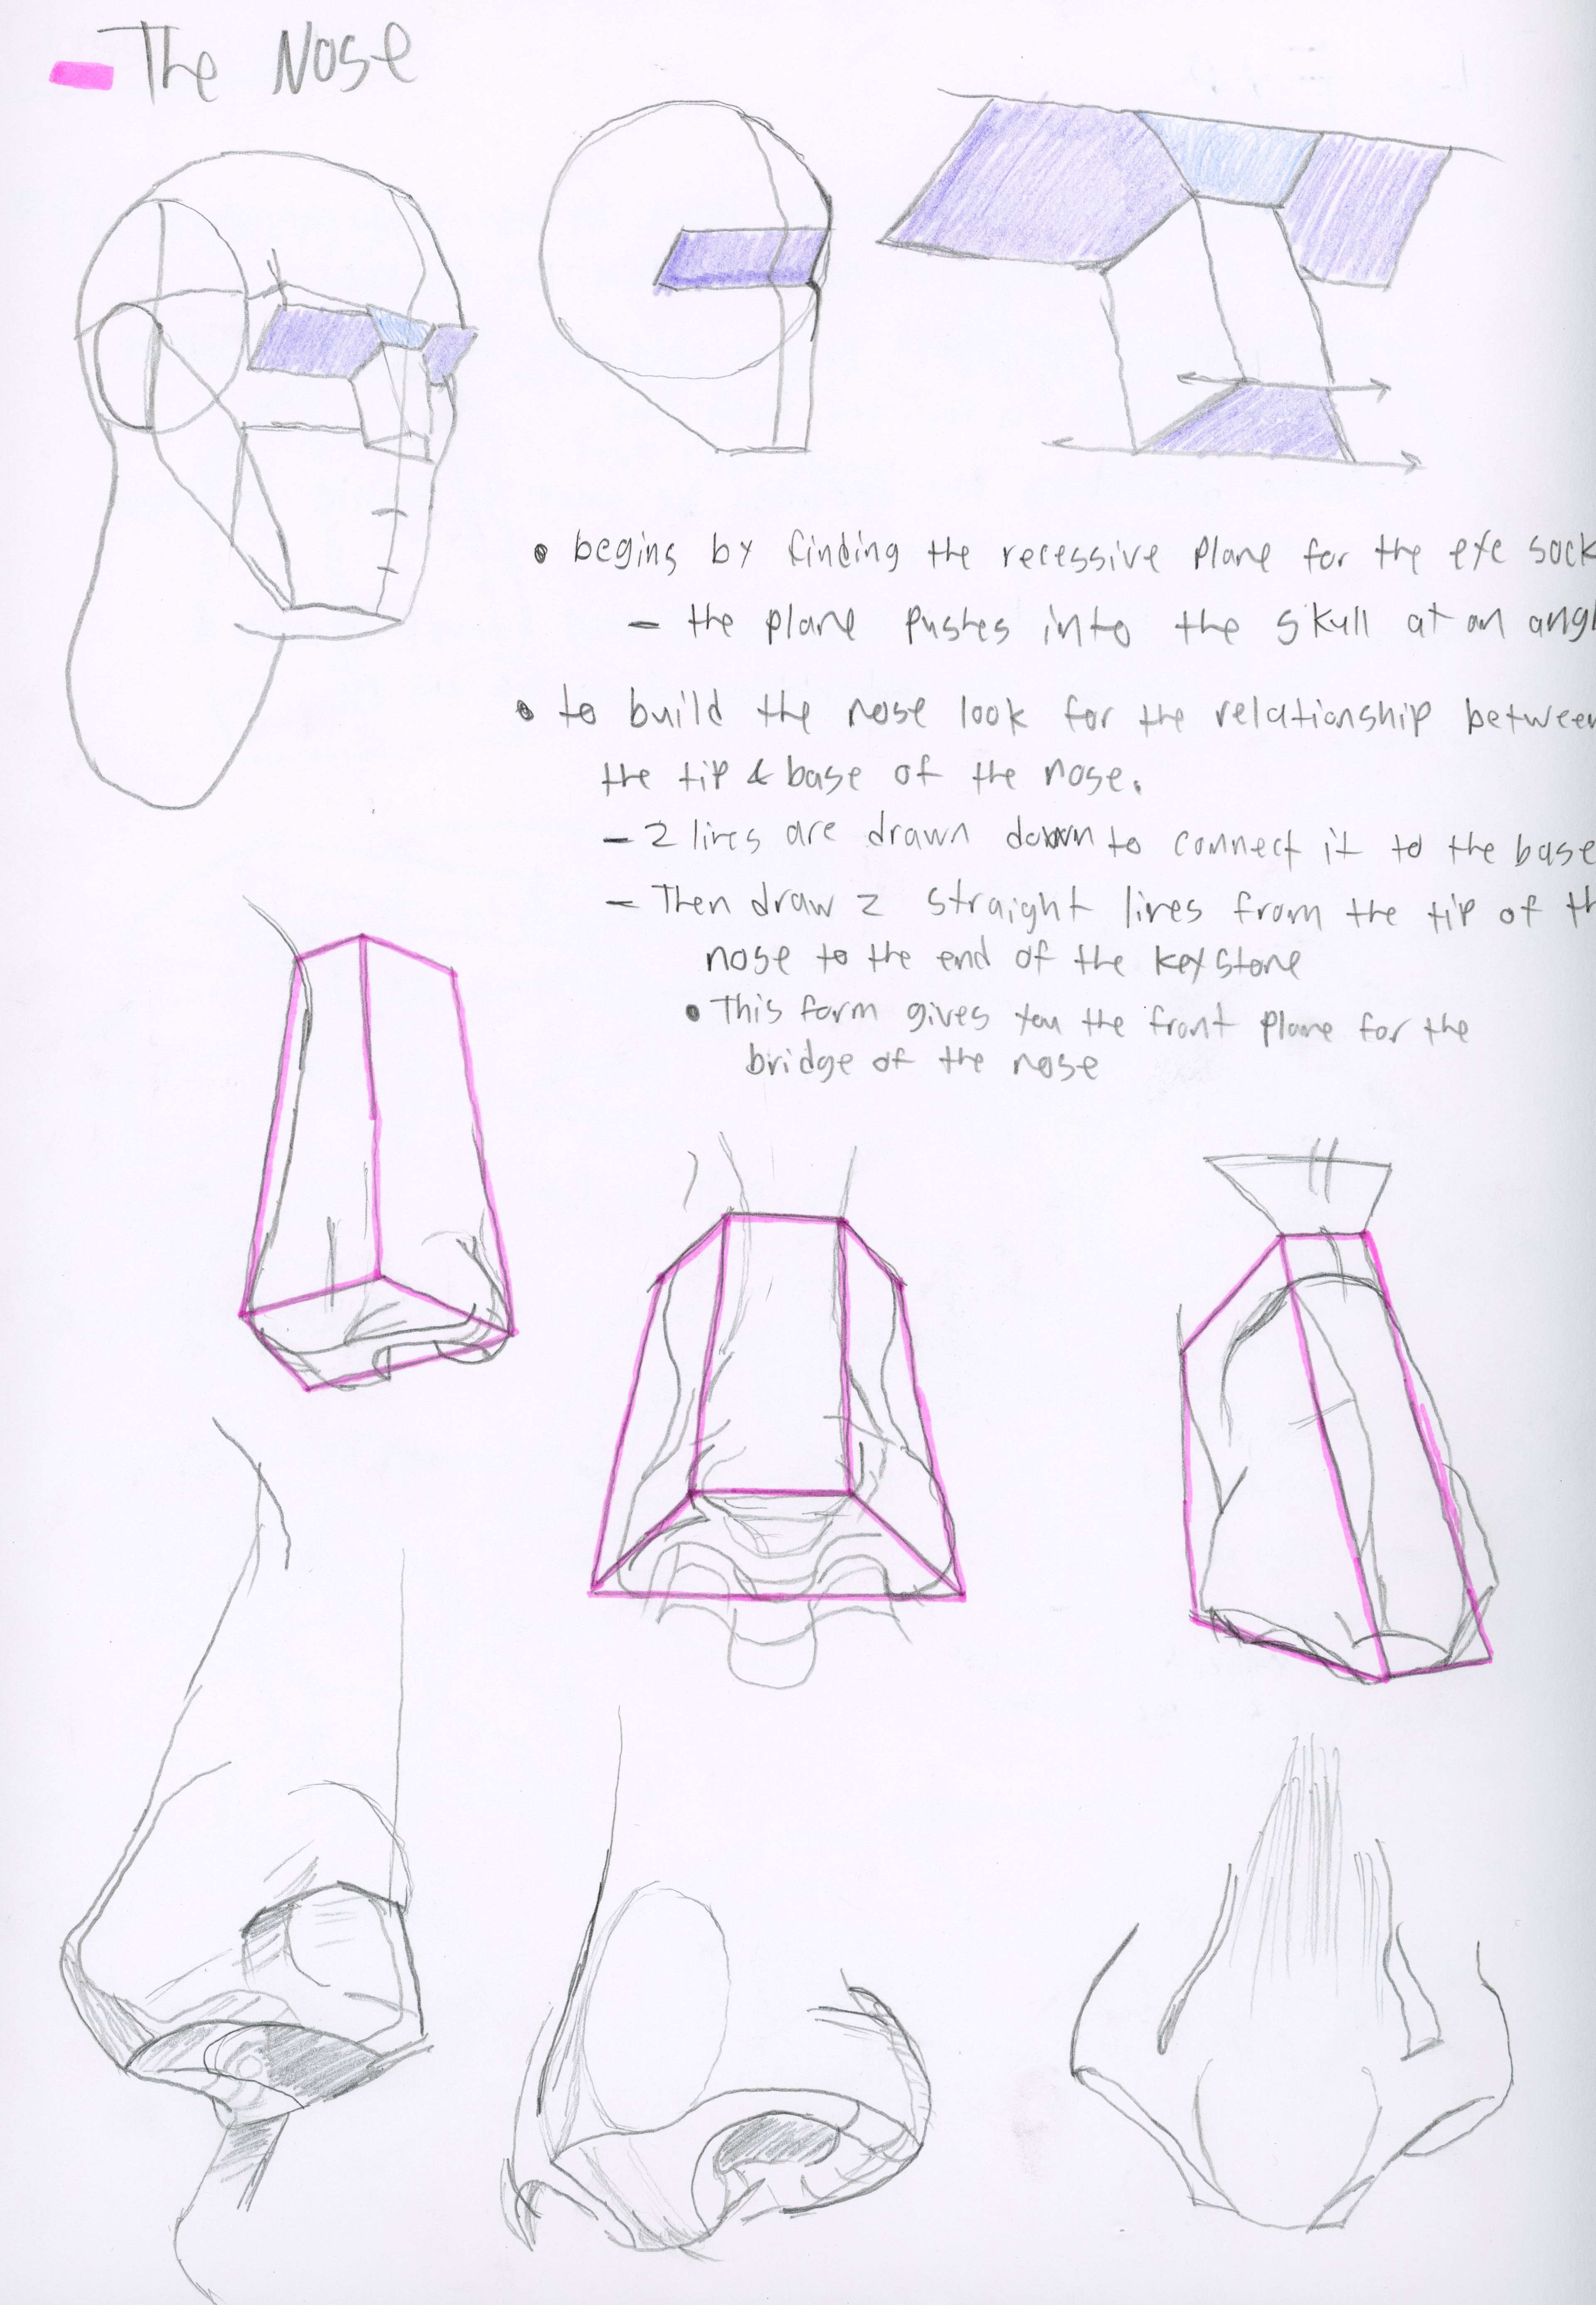 The Nose
• begins by finding the recessive plane for the eye sock
- the plane pushes into the skull at an angl
• to build the nose look for the relationship between
the tip & base of the nose.
- 2 lines are drawn down to connect it to the base
- Then draw 2 straight lines from the tip of th
nose to the end of the keystone
• This form gives you the front plane for the
bridge of the nose